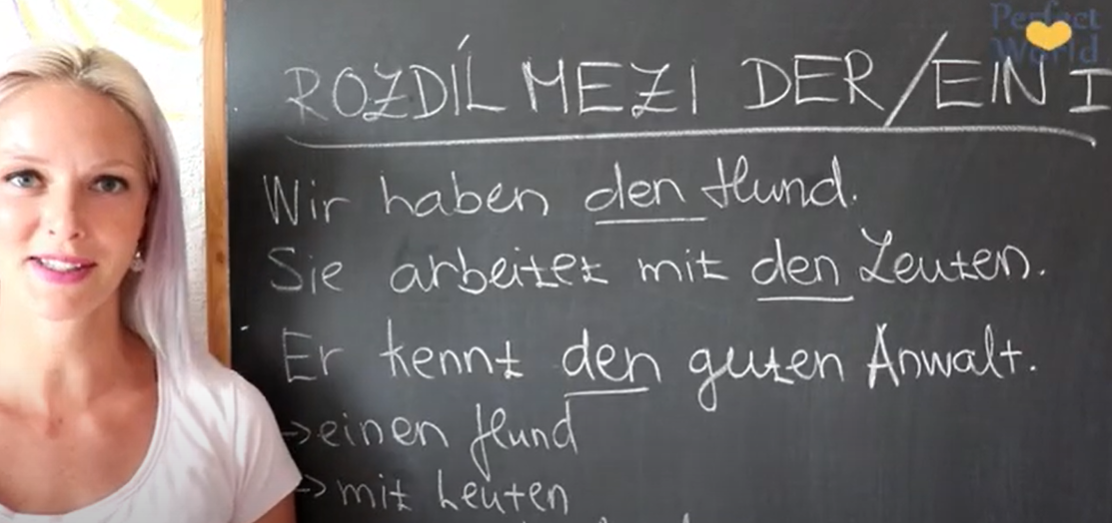 Perfect
World
ROZDÍL MEZI DER/EIN I
Wir haben den Hund.
Sie arbeitet mit den Leuten.
Er kennt den guten Anwalt.
→einen Hund
→mit Leuten